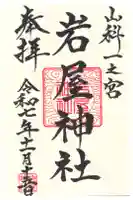 山科一之宮
岩屋神社
奉拝
令和七年十一月十三日